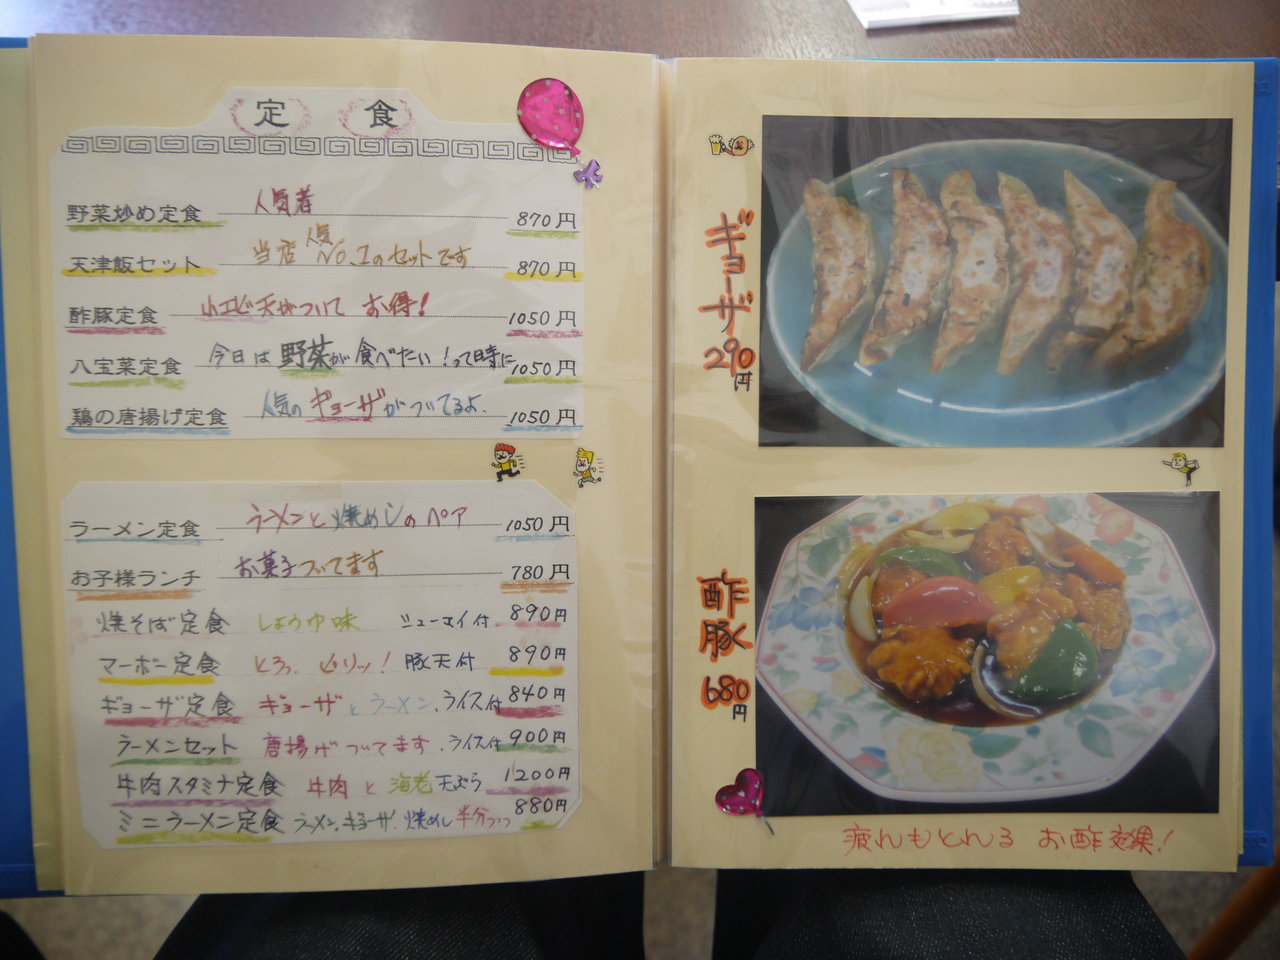 定 食
野菜炒め定食 人気者 870円
天津飯セット 当店人気No.1のセットです 870円
酢豚定食 小エビ天がついて お得! 1050円
八宝菜定食 今日は野菜が食べたい!って時に 1050円
鶏の唐揚げ定食 人気のギョーザがついてるよ. 1050円
ラーメン定食 ラーメンと焼めしのペア 1050円
お子様ランチ お菓子ついてます 780円
焼そば定食 しょうゆ味 シューマイ付 890円
マーボー定食 とろっ、ピリッ! 豚天付 890円
ギョーザ定食 ギョーザとラーメン、ライス付 840円
ラーメンセット 唐揚げついてます、ライス付 900円
牛肉スタミナ定食 牛肉と海老天ぷら 1200円
ミニラーメン定食 ラーメン、ギョーザ、焼めし半分づつ 880円
ギョーザ
290円
酢豚
680円
疲れもとれる お酢効果!